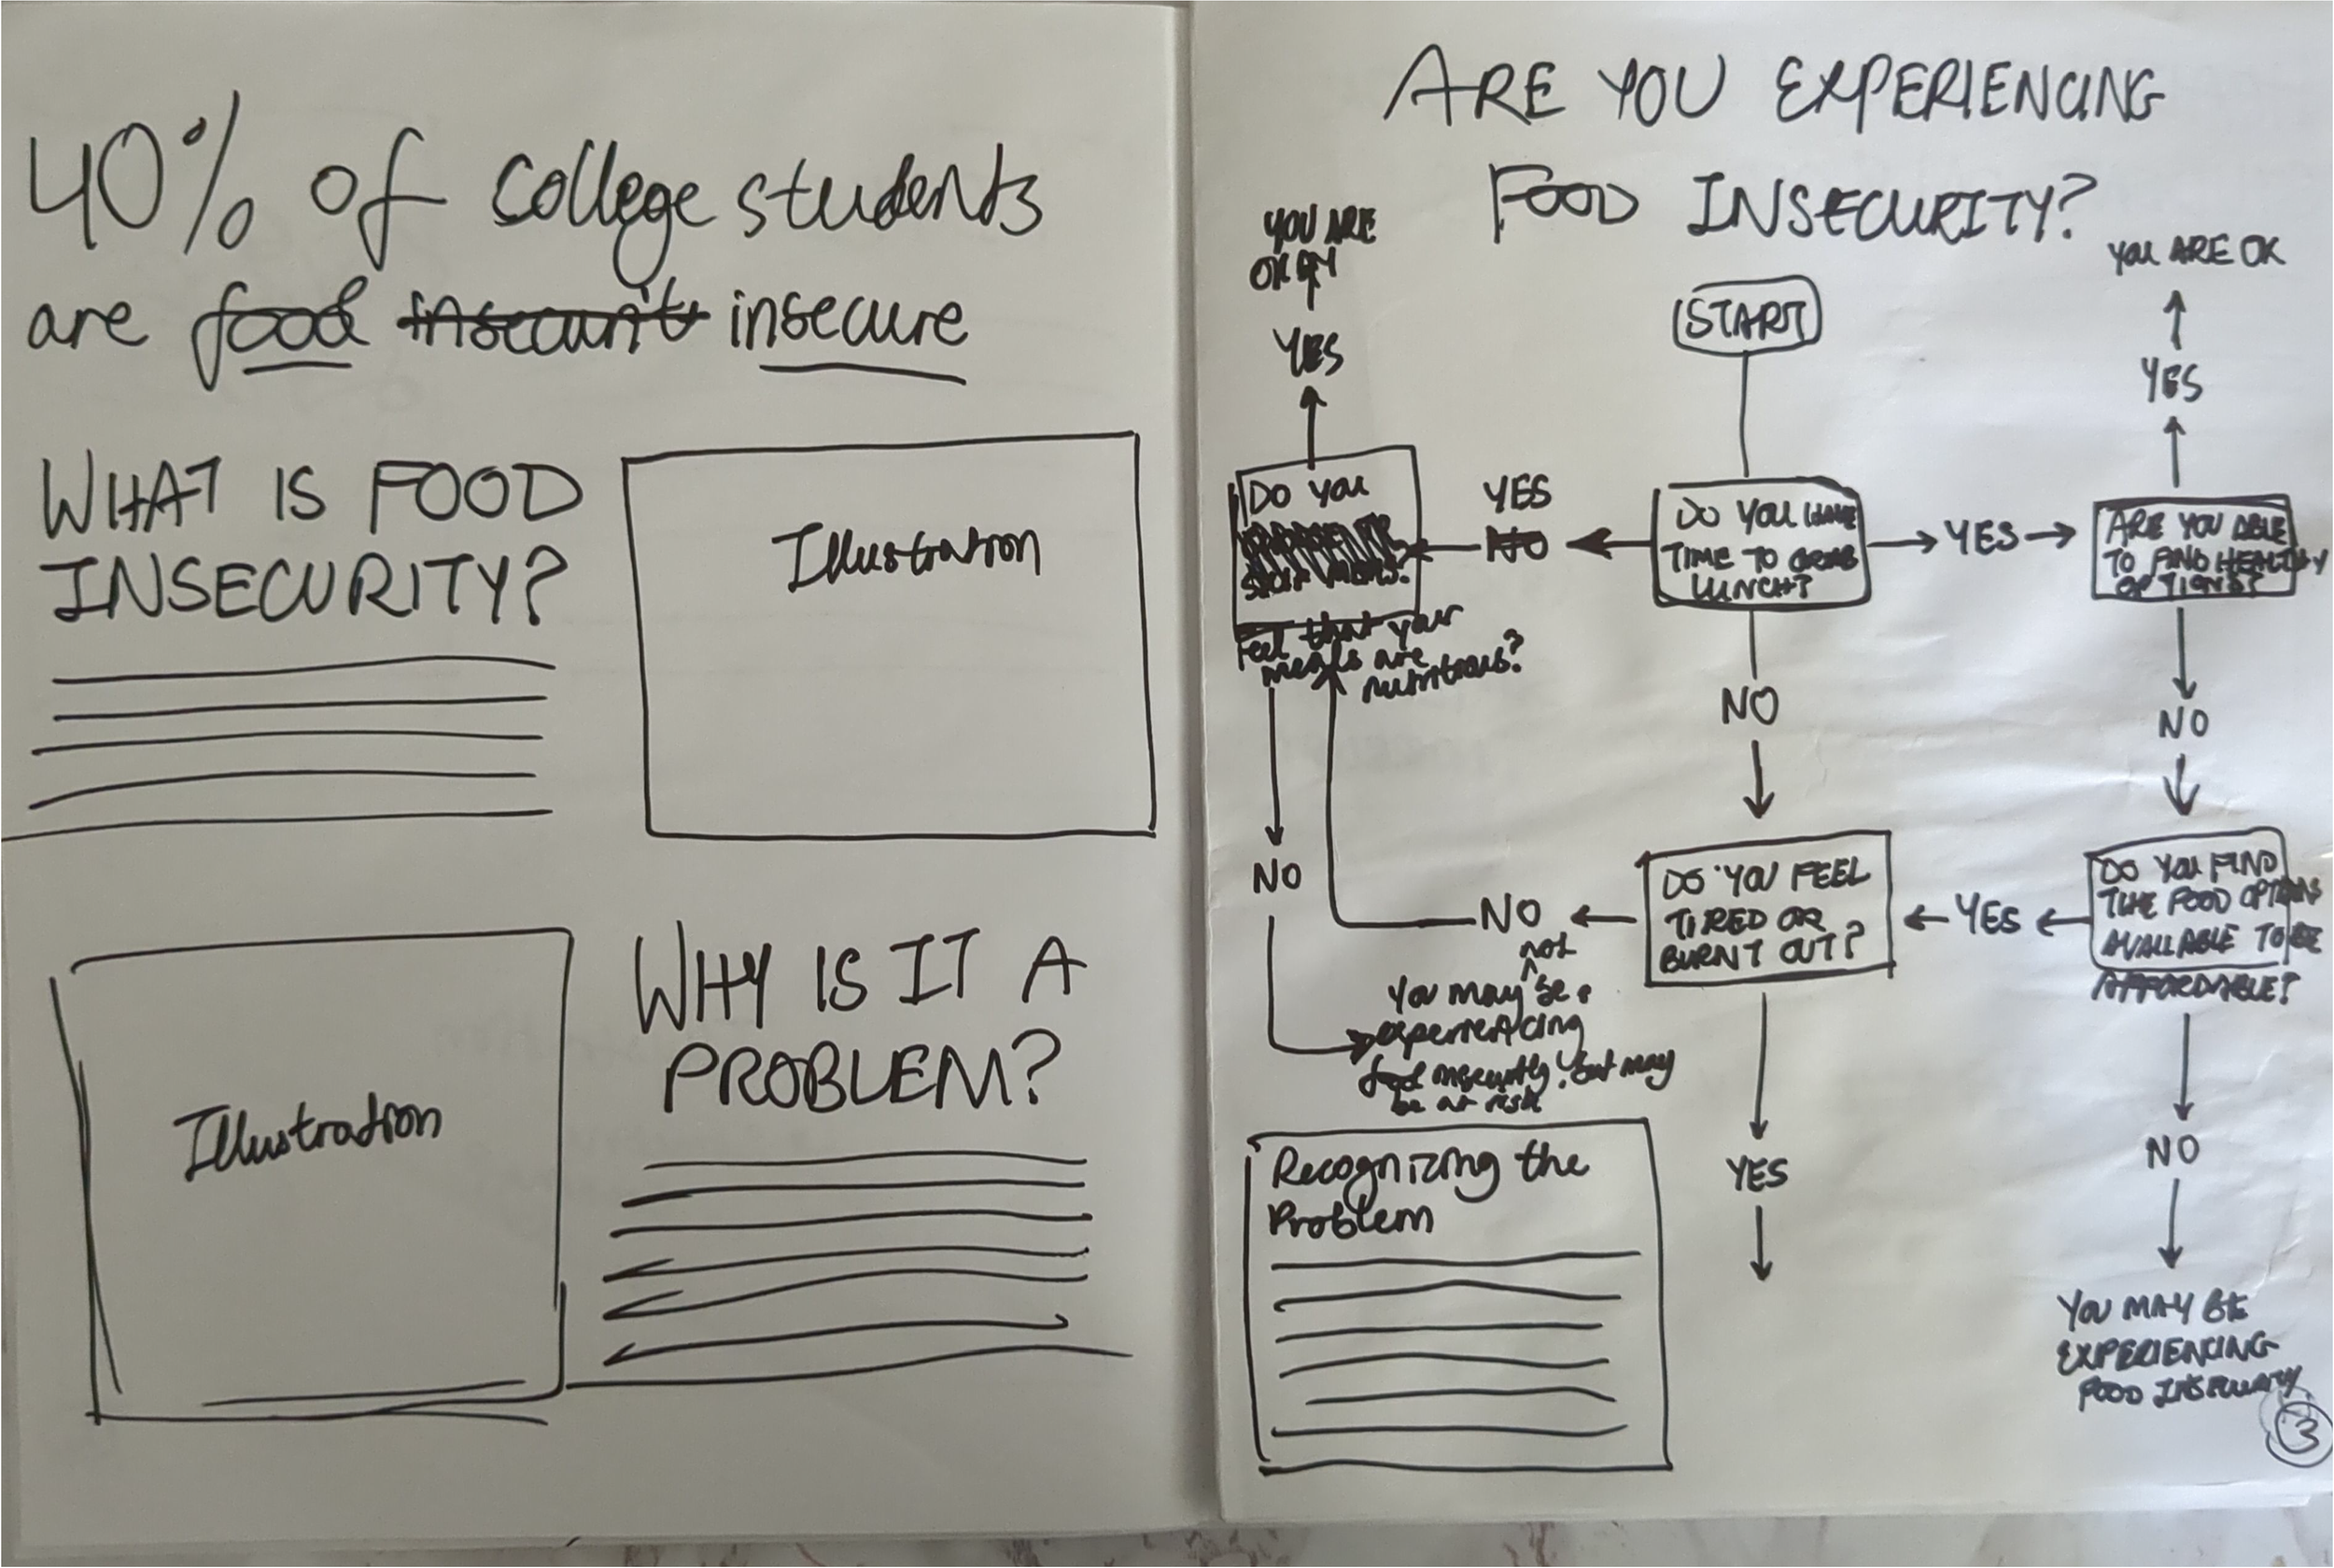 40% of college students
are food insecurity insecure
WHAT IS FOOD
INSECURITY?
Illustration
Illustration
WHY IS IT A
PROBLEM?
ARE YOU EXPERIENCING
FOOD INSECURITY?
START
DO YOU HAVE
TIME TO GRAB
LUNCH?
YES
ARE YOU ABLE
TO FIND HEALTHY
OPTIONS?
YES
YOU ARE OK
NO
DO YOU FIND
THE FOOD OPTIONS
AVAILABLE TO BE
AFFORDABLE?
YES
NO
YOU MAY BE
EXPERIENCING
FOOD INSECURITY
NO
DO YOU FEEL
TIRED OR
BURNT OUT?
YES
NO
YES
NO
DO YOU
Feel that your
meals are
nutritious?
YES
YOU ARE
OKAY
NO
not
You may be
experiencing
food insecurity, but may
be at risk
Recognizing the
Problem
3